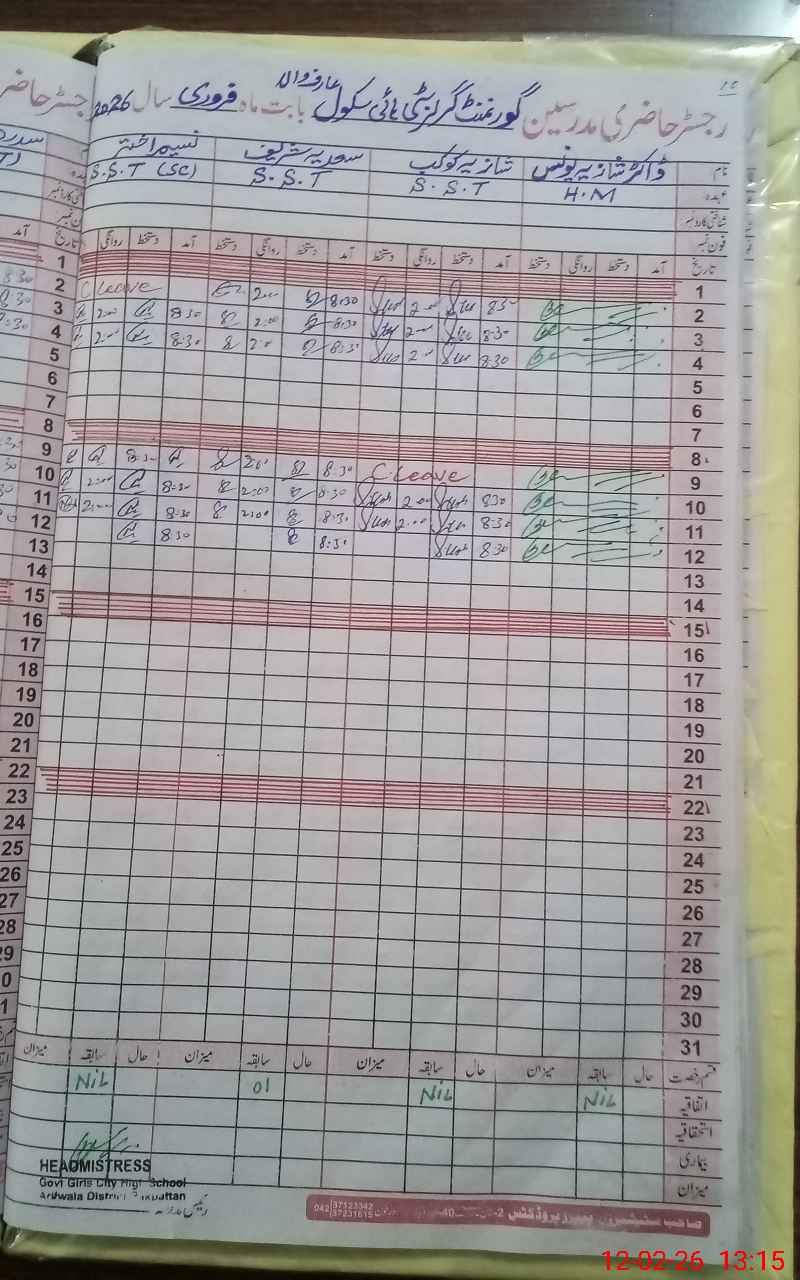 رجسٹر حاضری مدرسین گورنمنٹ گرلز سٹی ہائی سکول عارفوالہ بابت ماہ فروری سال 2026
نام ڈاکٹر شازیہ یونس شازیہ کوکب سعدیہ شریف نسیم اختر
عہدہ H.M S.S.T S.S.T S.S.T (SC)
شناختی کارڈ نمبر
فون نمبر
تاریخ آمد دستخط روانگی دستخط آمد دستخط روانگی دستخط آمد دستخط روانگی دستخط آمد دستخط روانگی تاریخ
1 1
2 8:30 2:00 8:30 2:00 C leave 2
3 8:30 2:00 8:30 2:00 8:30 2:00 3
4 8:30 2:00 8:30 2:00 8:30 2:00 4
5 5
6 6
7 7
8 8
9 C leave 8:30 2:00 8:30 9
10 8:30 2:00 8:30 2:00 8:30 2:00 10
11 8:30 2:00 8:30 2:00 8:30 2:00 11
12 8:30 8:30 8:30 12
13 13
14 14
15 15
16 16
17 17
18 18
19 19
20 20
21 21
22 22
23 23
24 24
25 25
26 26
27 27
28 28
29 29
30 30
31 31
قسم رخصت حال سابقہ میزان حال سابقہ میزان حال سابقہ میزان حال سابقہ میزان
اتفاقیہ NiL NiL 01 NiL
استحقاقیہ
بیماری
میزان
HEADMISTRESS
Govt Girls City High School
Arifwala District Pakpattan
رئیس مدرسہ
042 37123342
37231615
12-02-26 13:15